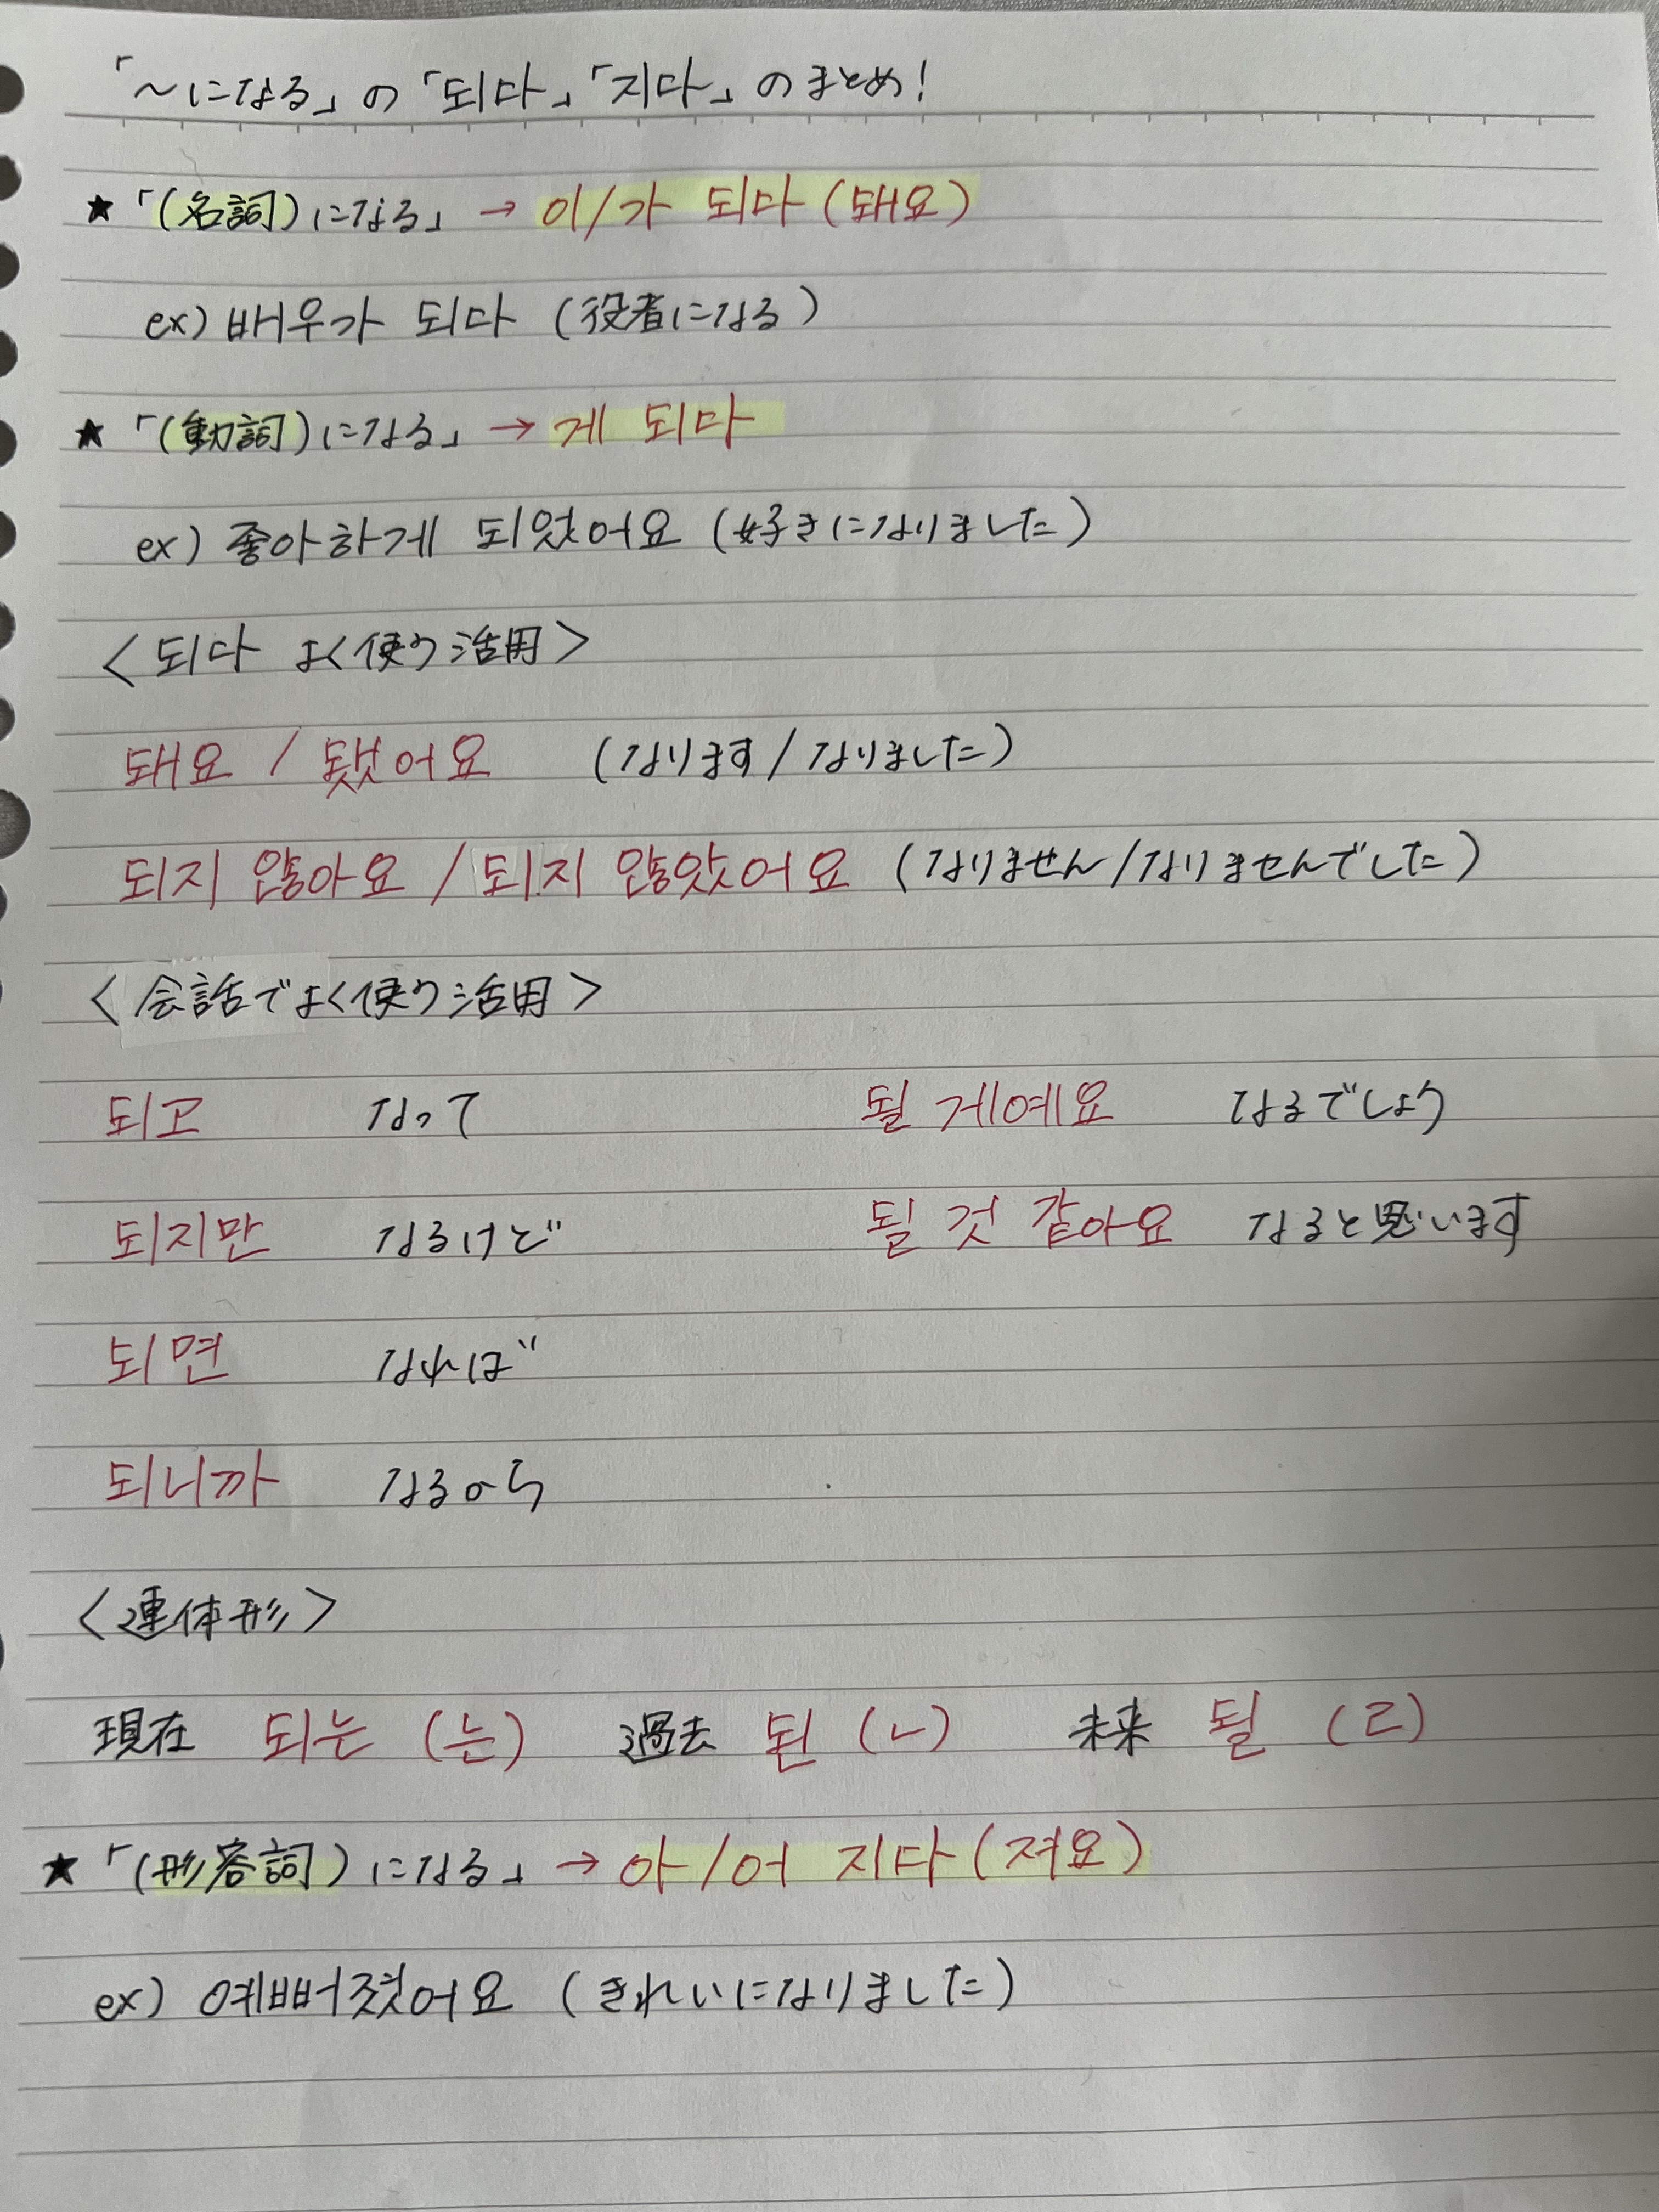 「～になる」の「되다」「지다」のまとめ!
★「(名詞)になる」→ 이/가 되다 (돼요)
ex) 배우가 되다 (役者になる)
★「(動詞)になる」→ 게 되다
ex) 좋아하게 되었어요 (好きになりました)
<되다 よく使う活用>
돼요 / 됐어요 (なります/なりました)
되지 않아요 / 되지 않았어요 (なりません/なりませんでした)
<会話でよく使う活用>
되고 なって 될 게예요 なるでしょう
되지만 なるけど 될 것 같아요 なると思います
되면 なれば
되니까 なるから
<連体形>
現在 되는 (는) 過去 된 (ㄴ) 未来 될 (ㄹ)
★「(形容詞)になる」→ 아/어 지다 (저요)
ex) 예뻐졌어요 (きれいになりました)